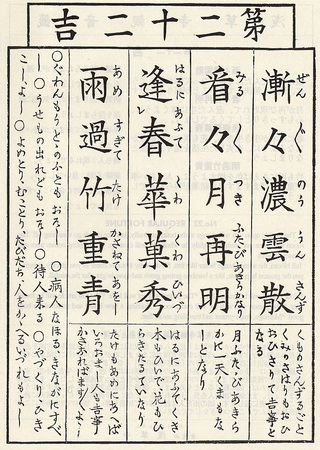 第二十二吉
漸々濃雲散
ぜん〲 のう うん さんず
くものさんずるごと
くみのさはりもおひ
おひさりて吉事と
なる
看々月再明
みる〱 つき ふたゝびあきらかなり
月ふたゝびあきら
かに一天くまもな
しとなり
逢レ春華菓秀
はるにあふて くわ くわ ひいづ
はるにあふてくさ
木もひいで、花もひ
らきたるていなり
雨過竹重青
あめ すぎて たけ かさねてあをし
たけもあめにあへば
いろおまし人も吉事
かさなればますますよし
○ぐわんもうとゝのふともおそし ○病人なほる、きながにすべ
し ○うせもの出れどもおそし ○待人来る ○やづくり、ひき
こし、よし ○よめとり、むことり、たびだち、人をかゝへる、いづれもよし